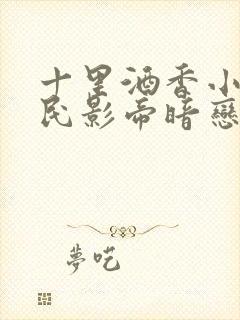 十里酒香小
民影帝暗戀
夢吃